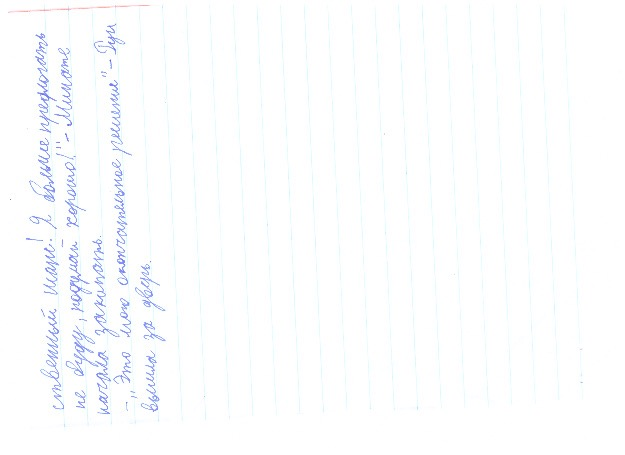 ственный шанс! Я больше предлогать
не буду, подумай хорошо!" – Минате
начала закипать.
– "Это мого окончательное решение" – Гун
вышла за дверь.